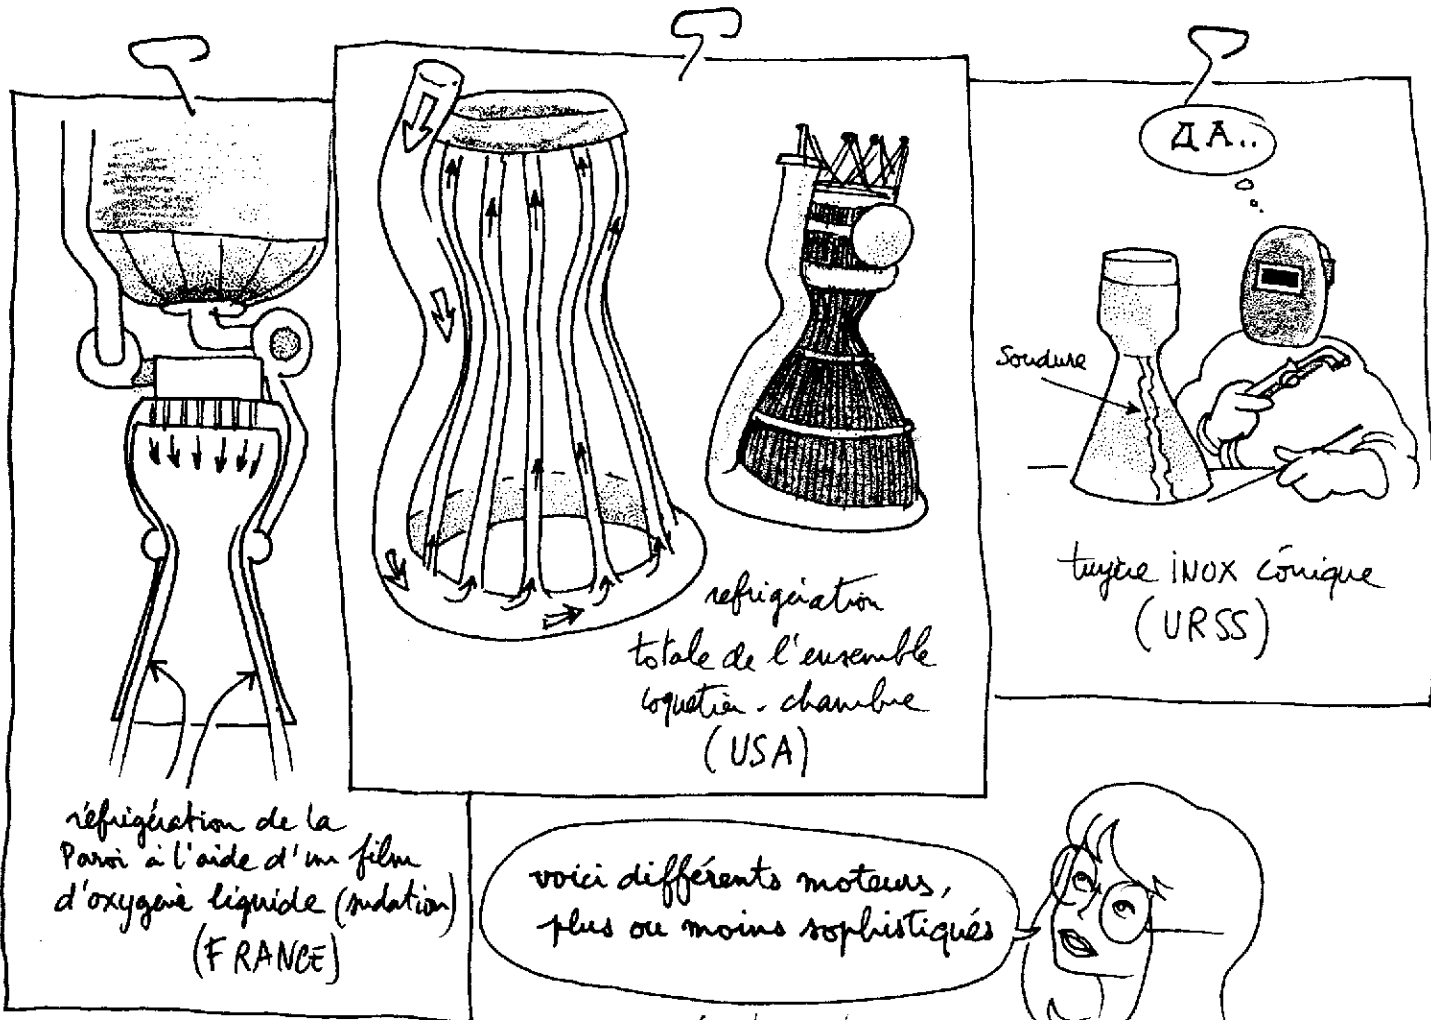 réfrigération de la
Paroi à l'aide d'un film
d'oxygène liquide (sudation)
(FRANCE)
refrigération
totale de l'ensemble
coquetier - chambre
(USA)
ДА..
Soudure
tuyère iNOX cônique
(URSS)
voici différents moteurs,
plus ou moins sophistiqués